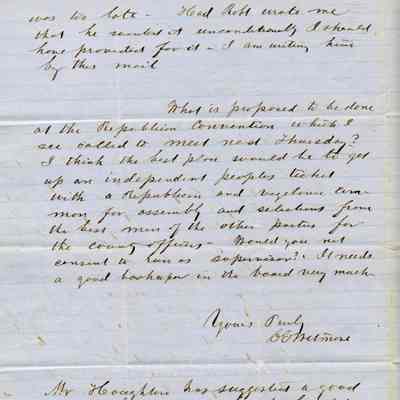 was too late - Had Robt wrote me
that he wanted it unconditionally I should
have provided for it - I am writing him
by this mail
What is proposed to be done
at the Republican Convention which I
see called to meet next Thursday?
I think the best plan would be to get
up an independent peoples ticket
with a Republican and
man for assembly and selections from
the best men of the other parties for
the county offices - Would you not
consent to run as supervisor? It needs
a good in the board very much
Yours Truly
C C Wetmore
Mr Houghton has suggested a good